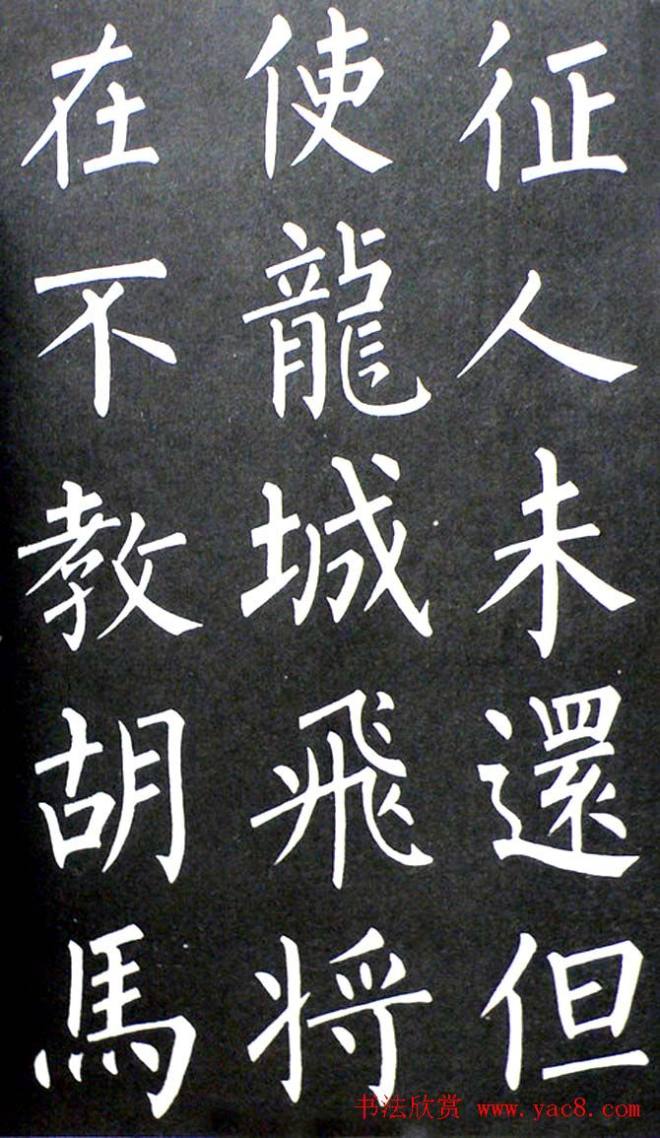 征人未還但
使龍城飛将
在不教胡馬
书法欣赏 www.yac8.com